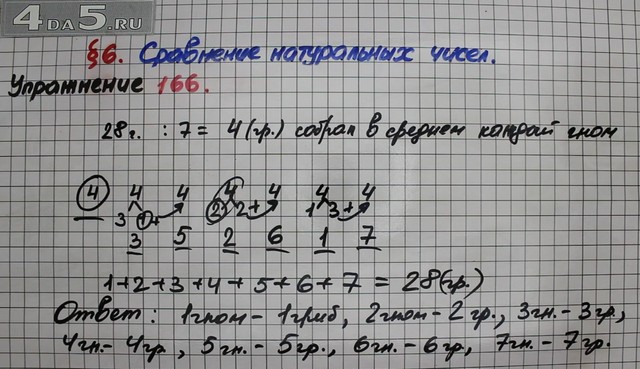 4DA5.RU
§6. Сравнение натуральных чисел.
Упражнение 166.
28г. : 7 = 4 (гр.) собрал в среднем каждый гном
4 4 4 4 4 4 4
3 1+ 2 2+ 1 3+
3 5 2 6 1 7
1+2+3+4+5+6+7 = 28(гр.)
Ответ: 1гном - 1гриб, 2гном - 2 гр., 3гн. - 3гр,
4гн. - 4гр, 5гн. - 5гр., 6гн. - 6гр, 7гн. - 7гр.